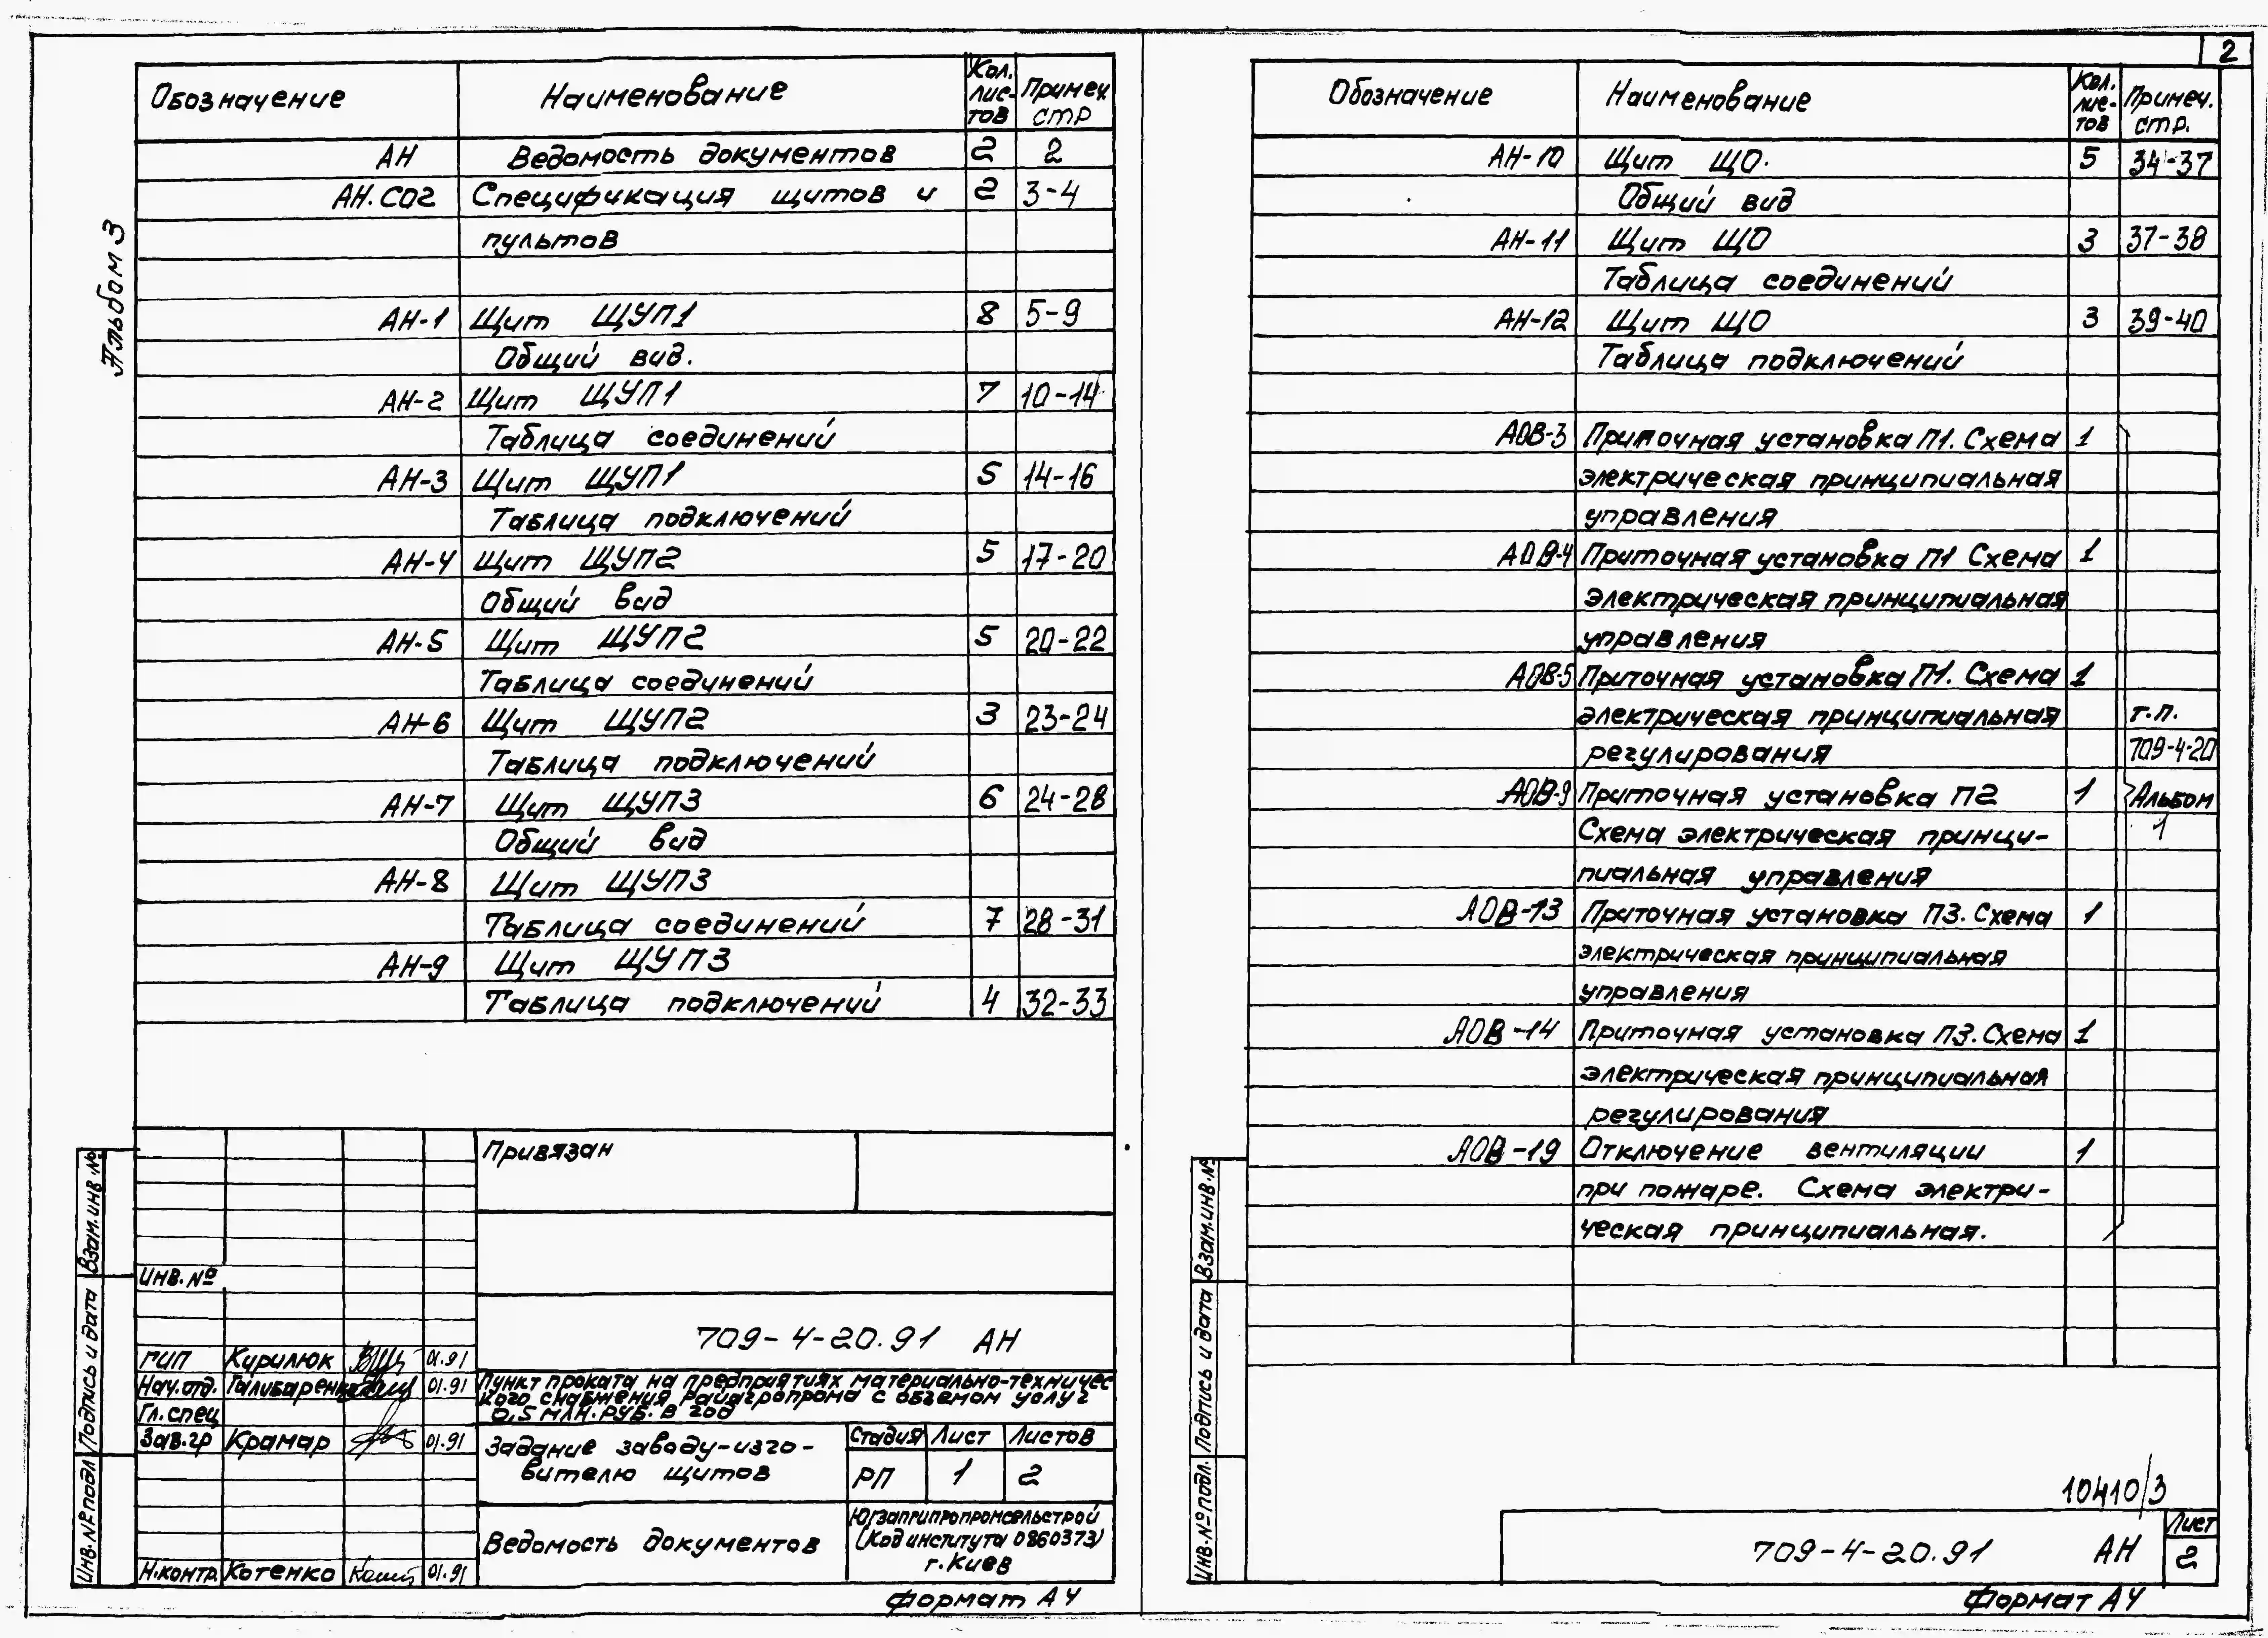 Альбом 3
Обозначение Наименование Кол. лис- тов Примеч. стр
АН Ведомость документов 2 2
АН.СО2 Спецификация щитов и 2 3-4
пультов
АН-1 Щит ЩУП1 8 5-9
Общий вид.
АН-2 Щит ЩУП1 7 10-14
Таблица соединений
АН-3 Щит ЩУП1 5 14-16
Таблица подключений
АН-4 Щит ЩУП2 5 17-20
Общий вид
АН-5 Щит ЩУП2 5 20-22
Таблица соединений
АН-6 Щит ЩУП2 3 23-24
Таблица подключений
АН-7 Щит ЩУП3 6 24-28
Общий вид
АН-8 Щит ЩУП3
Таблица соединений 7 28-31
АН-9 Щит ЩУП3
Таблица подключений 4 32-33
Привязан
Инв.№
709-4-20.91 АН
ГИП Курилюк 01.91
Нач.отд. 01.91
Гл.спец
Зав.гр Крамар 01.91
Н.контр. Котенко 01.91
Пункт проката на предприятиях материально-техничес
кого снабжения Райагропрома с объемом услуг
0,5 млн.руб. в год
Задание заводу-изго-
вителю щитов
Стадия Лист Листов
РП 1 2
Ведомость документов
Югзапгипропромсельстрой
(Код института 0860373)
г.Киев
Формат А4
Взам.инв.№
Подпись и дата
Инв.№ подл
2
Обозначение Наименование Кол. лис- тов Примеч. стр.
АН-10 Щит ЩО. 5 34-37
Общий вид
АН-11 Щит ЩО 3 37-38
Таблица соединений
АН-12 Щит ЩО 3 39-40
Таблица подключений
АОВ-3 Приточная установка П1. Схема 1
электрическая принципиальная
управления
АОВ-4 Приточная установка П1 Схема 1
электрическая принципиальная
управления
АОВ-5 Приточная установка П1. Схема 1
электрическая принципиальная т.п.
регулирования 709-4-20
АОВ-9 Приточная установка П2 1 Альбом
Схема электрическая принци- 1
пиальная управления
АОВ-13 Приточная установка П3. Схема 1
электрическая принципиальная
управления
АОВ-14 Приточная установка П3. Схема 1
электрическая принципиальная
регулирования
АОВ-19 Отключение вентиляции 1
при пожаре. Схема электри-
ческая принципиальная.
Взам.инв.№
Подпись и дата
Инв.№ подл.
10410/3
709-4-20.91 АН
Лист
2
Формат А4